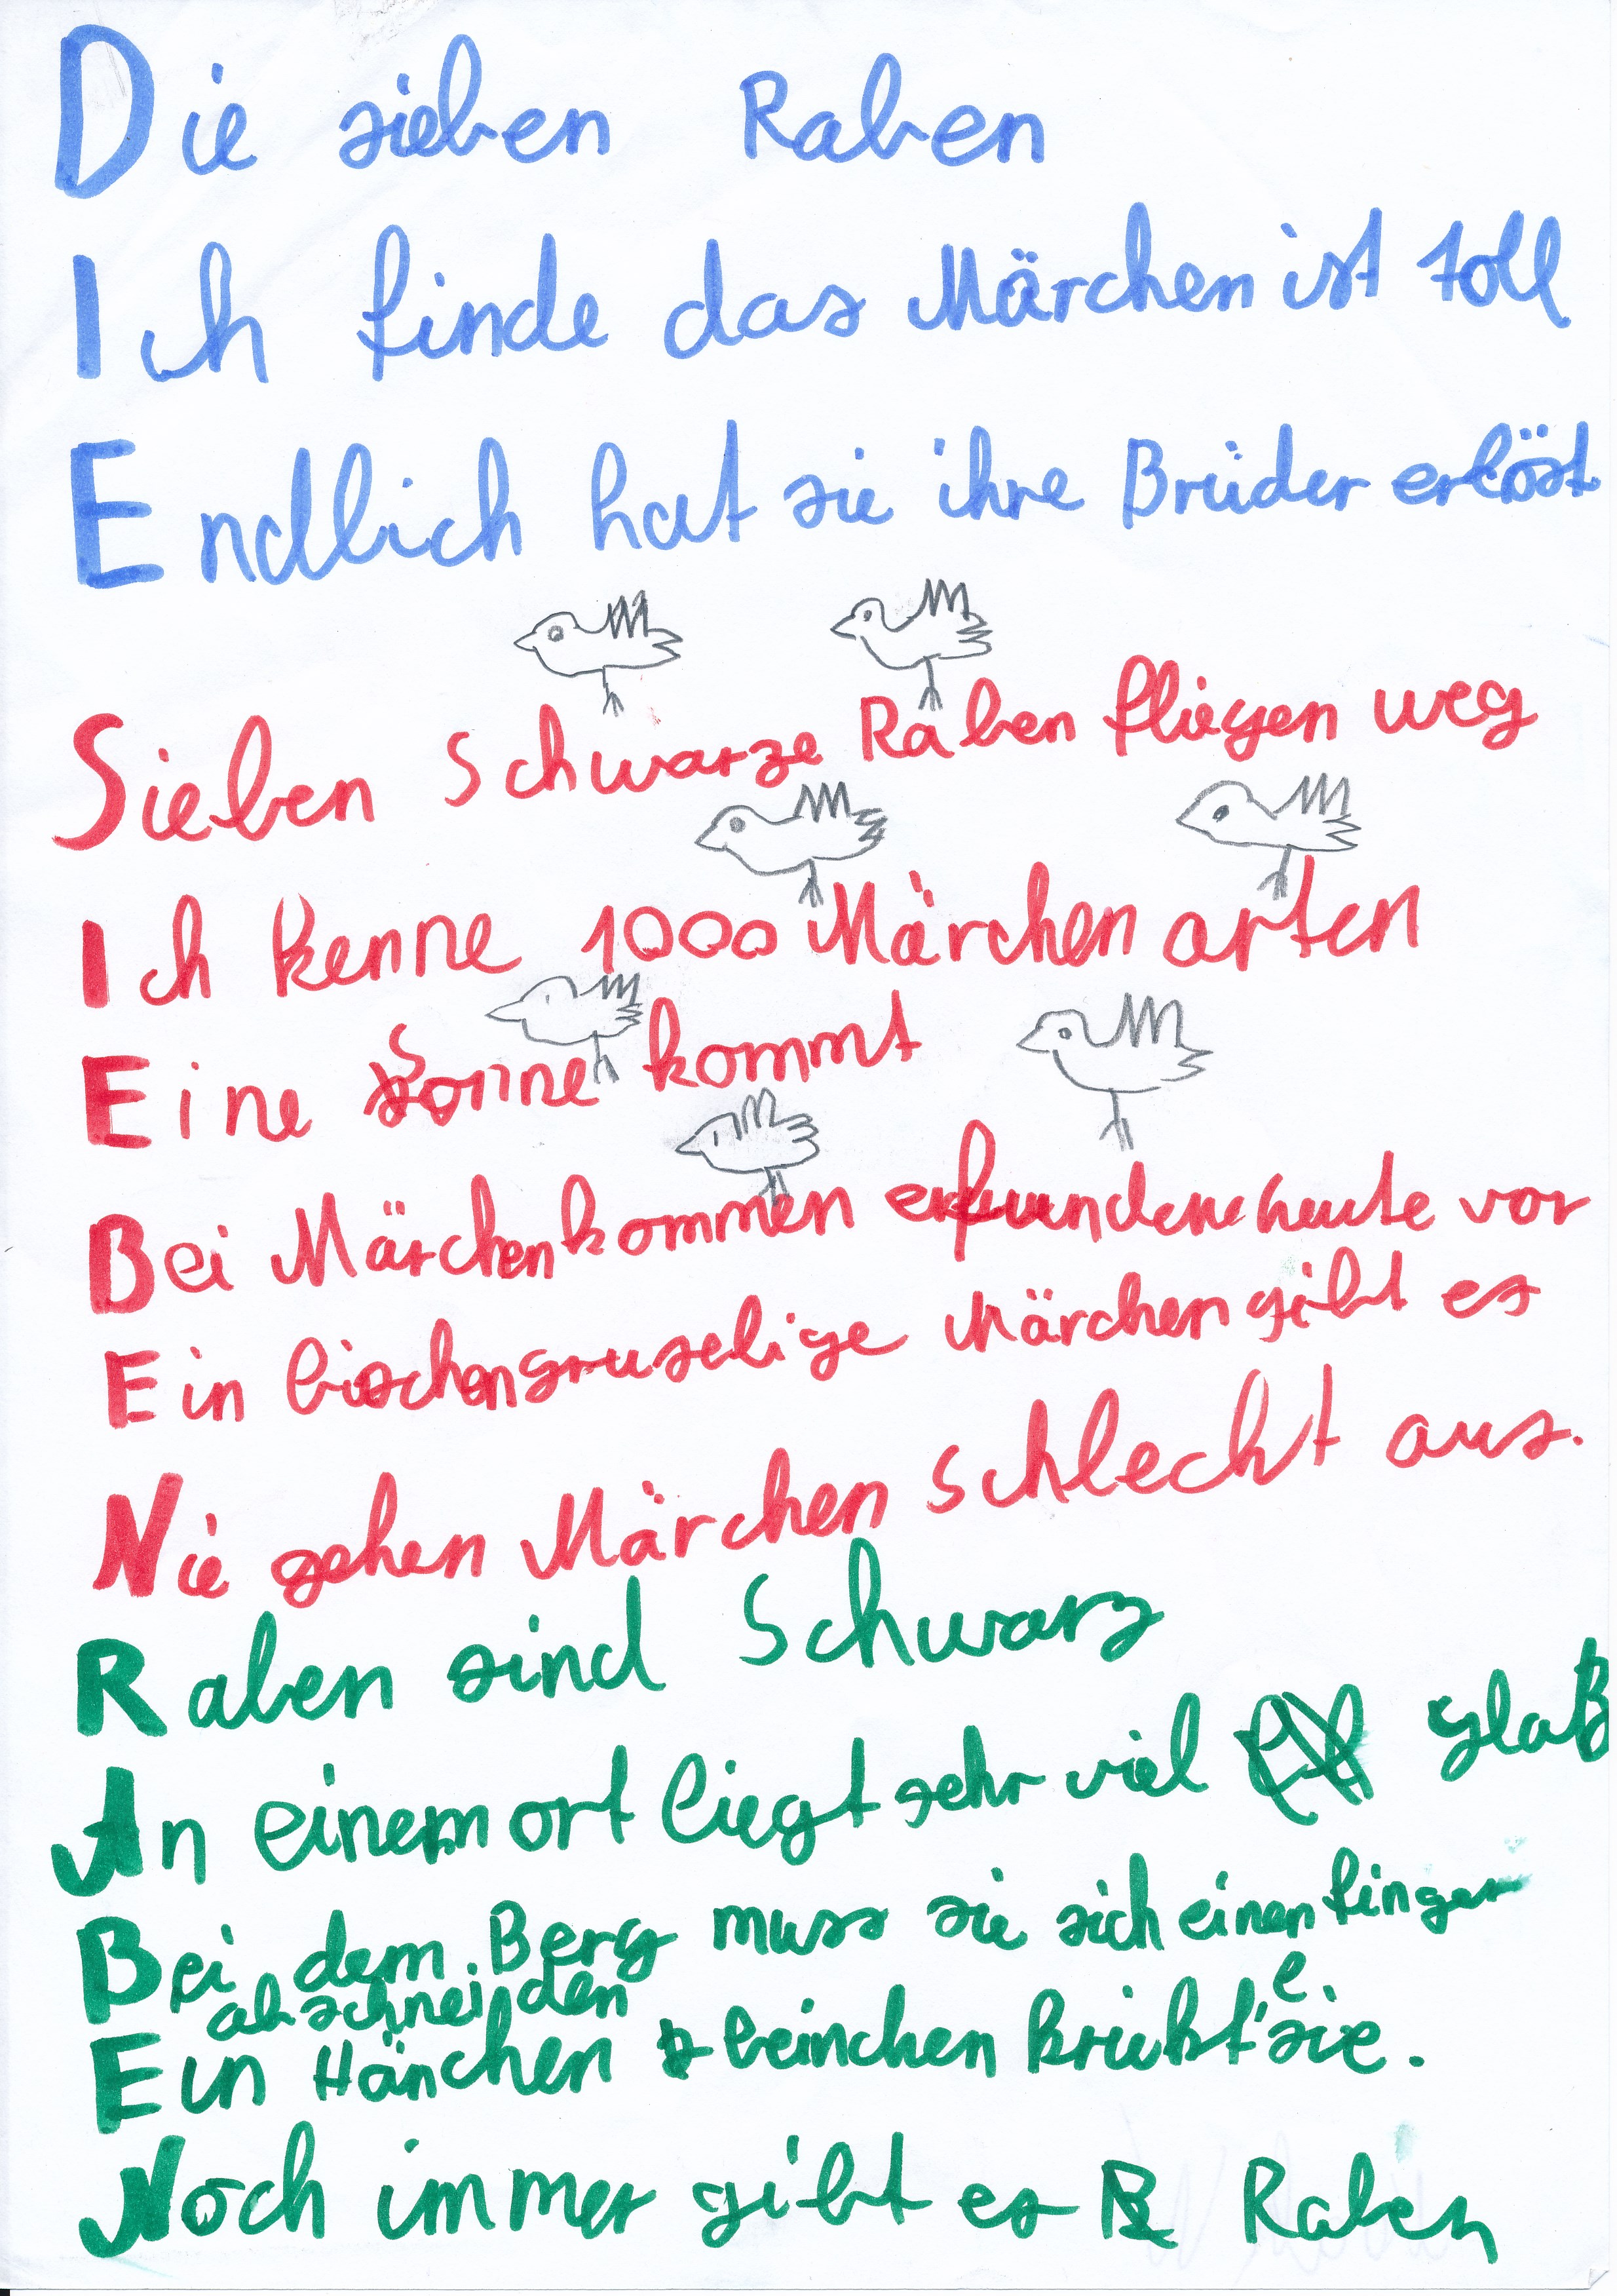 Die sieben Raben
Ich finde das Märchen ist toll
Endlich hat sie ihre Brüder erlöst
Sieben Schwarze Raben fliegen weg
Ich kenne 1000 Märchen arten
Eine Sonne kommt
Bei Märchen kommen erfundene heute vor
Ein bischen gruselige Märchen gibt es
Nie gehen Märchen schlecht aus.
Raben sind Schwarz
An einem ort liegt sehr viel glaß
Bei dem Berg muss sie sich einen finger
abschneiden
Ein Hänchen beinchen kriekte sie.
Noch immer gibt es Raben